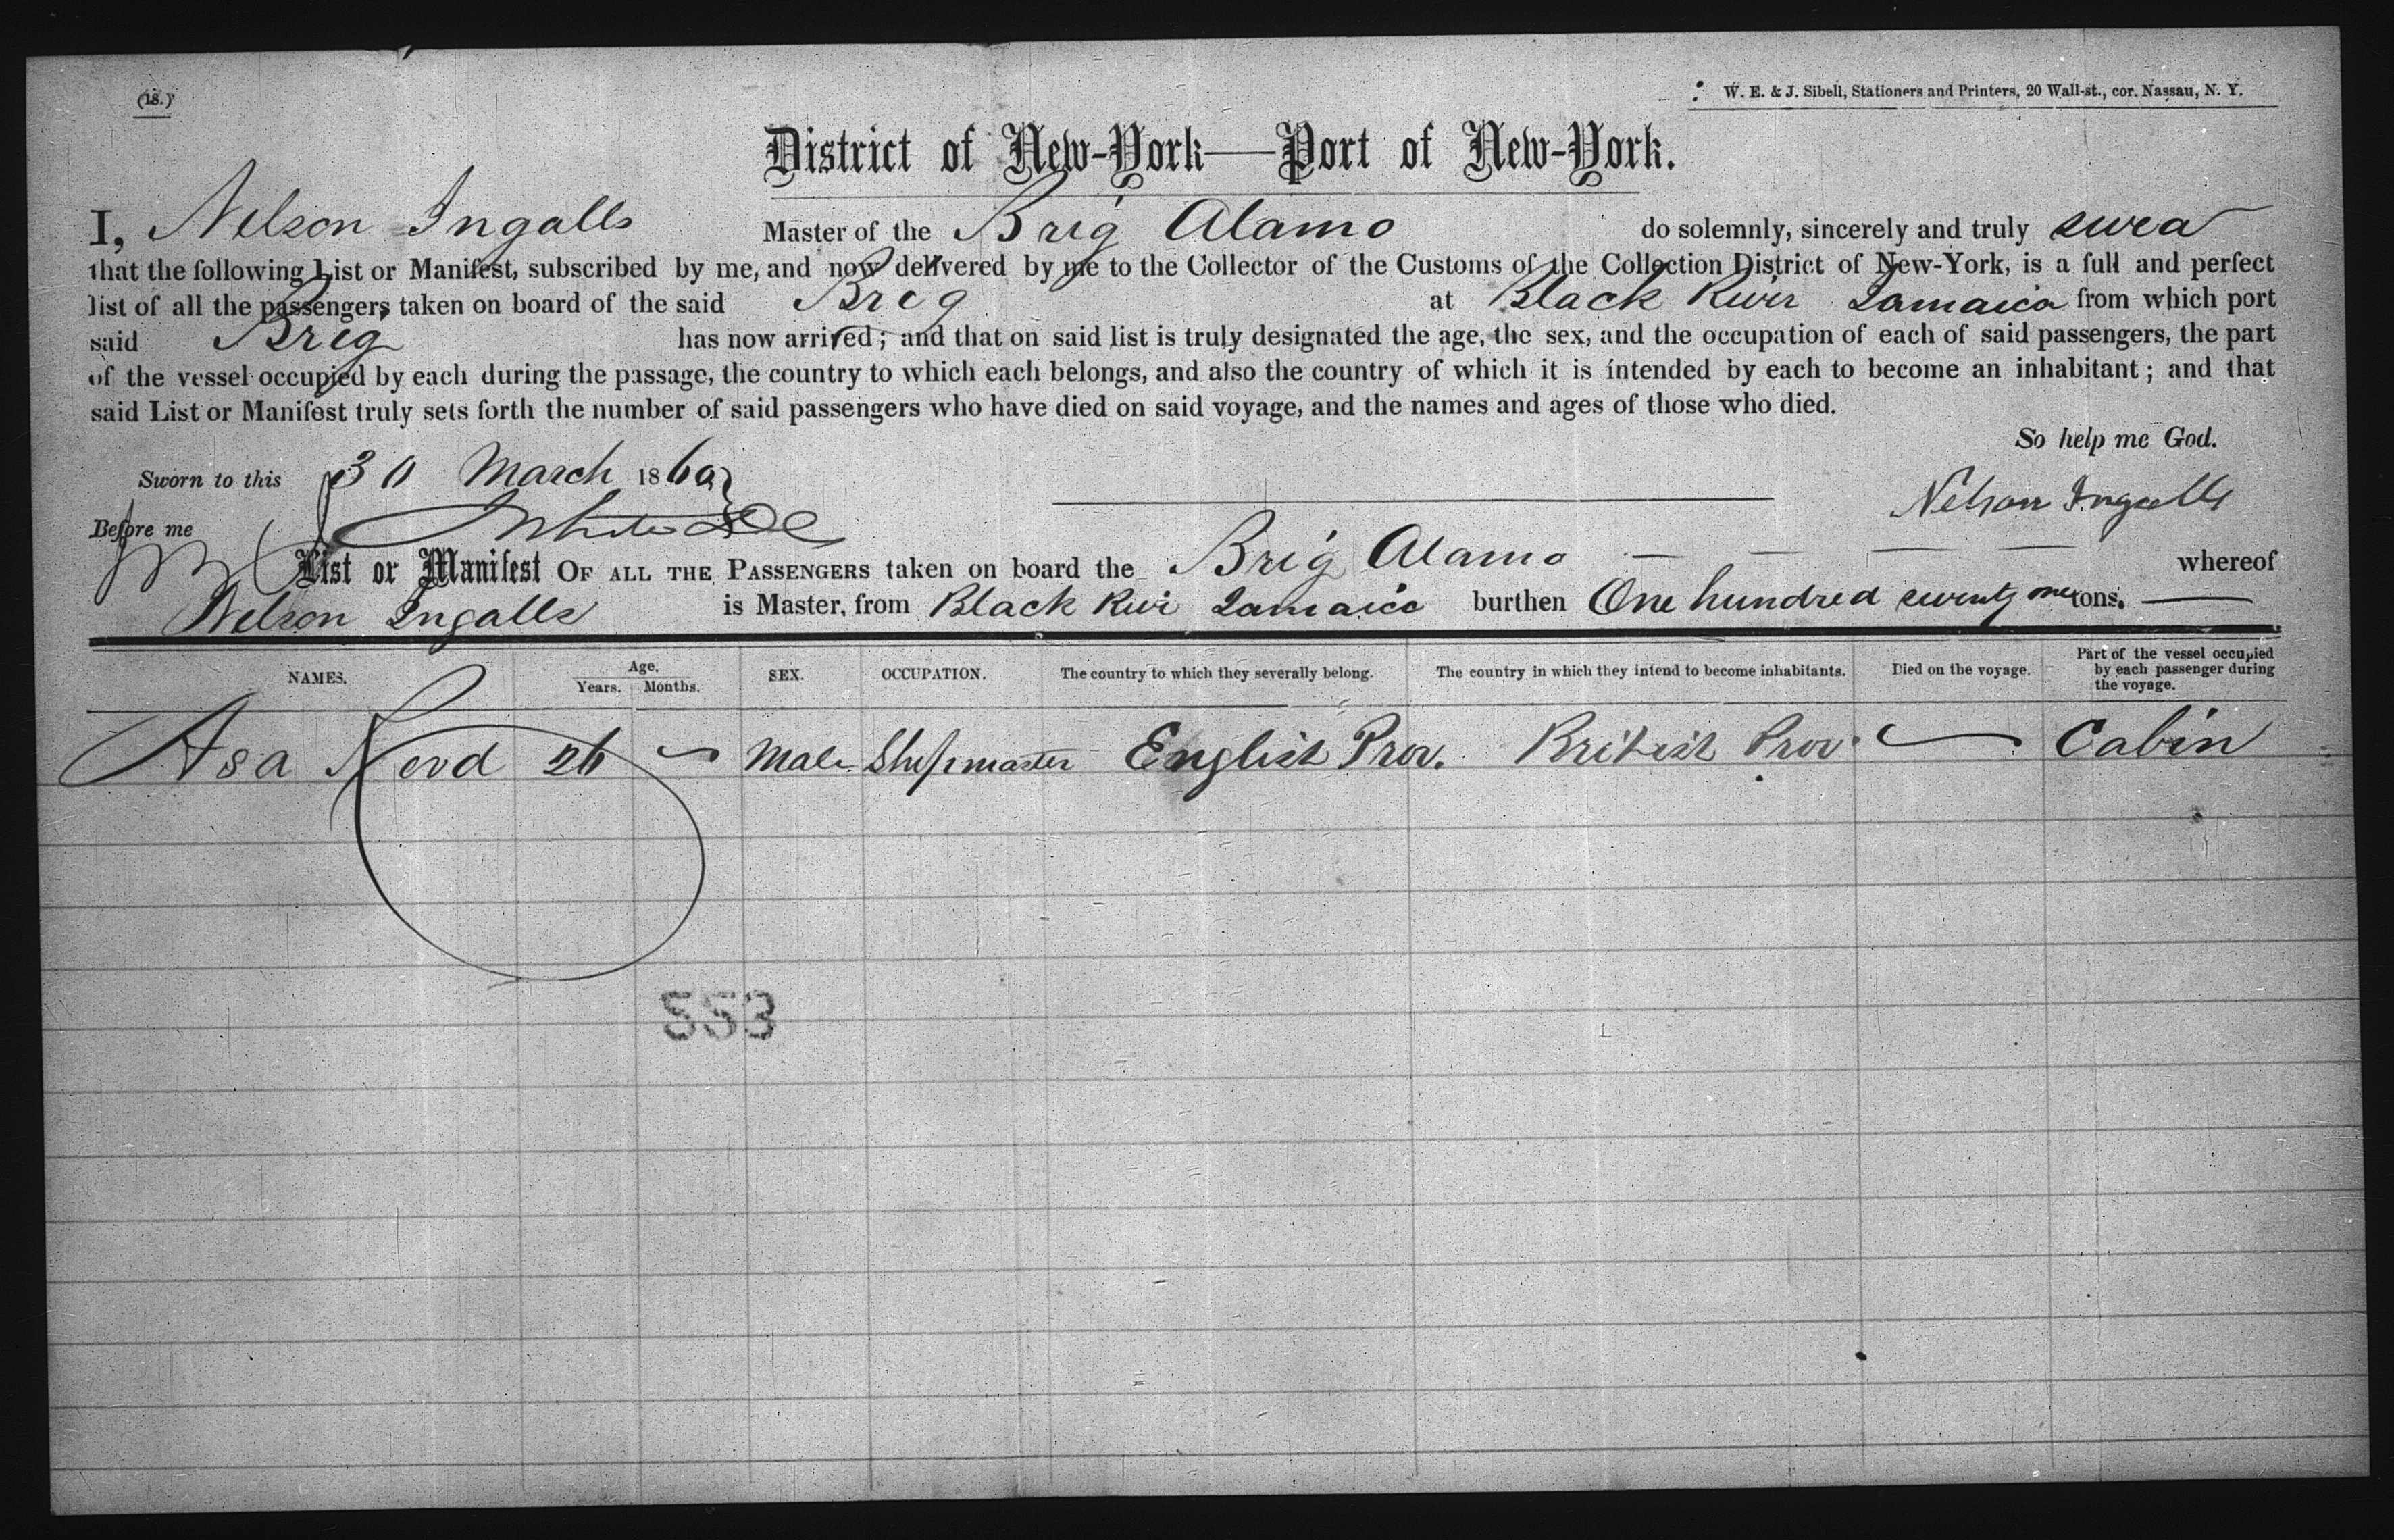 (18.)
W. E. & J. Sibell, Stationers and Printers, 20 Wall-st., cor. Nassau, N. Y.
District of New-York—Port of New-York.
I, Nelson Ingalls Master of the Brig Alamo do solemnly, sincerely and truly swea
that the following List or Manifest, subscribed by me, and now delivered by me to the Collector of the Customs of the Collection District of New-York, is a full and perfect
list of all the passengers taken on board of the said Brig at Black River Jamaica from which port
said Brig has now arrived; and that on said list is truly designated the age, the sex, and the occupation of each of said passengers, the part
of the vessel occupied by each during the passage, the country to which each belongs, and also the country of which it is intended by each to become an inhabitant; and that
said List or Manifest truly sets forth the number of said passengers who have died on said voyage, and the names and ages of those who died.
So help me God.
Sworn to this 30 March 1860
Nelson Ingalls
Before me
List or Manifest OF ALL THE PASSENGERS taken on board the Brig Alamo — — — — whereof
Nelson Ingalls is Master, from Black Rivr Jamaica burthen One hundred seventy one tons.
NAMES. Age. Years. Months. SEX. OCCUPATION. The country to which they severally belong. The country in which they intend to become inhabitants. Died on the voyage. Part of the vessel occupied by each passenger during the voyage.
Asa 26 Male Shipmaster English Prov. British Prov. — Cabin
553